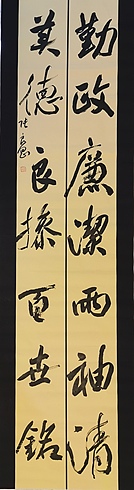 勤政廉潔兩袖清
美德良操百世銘